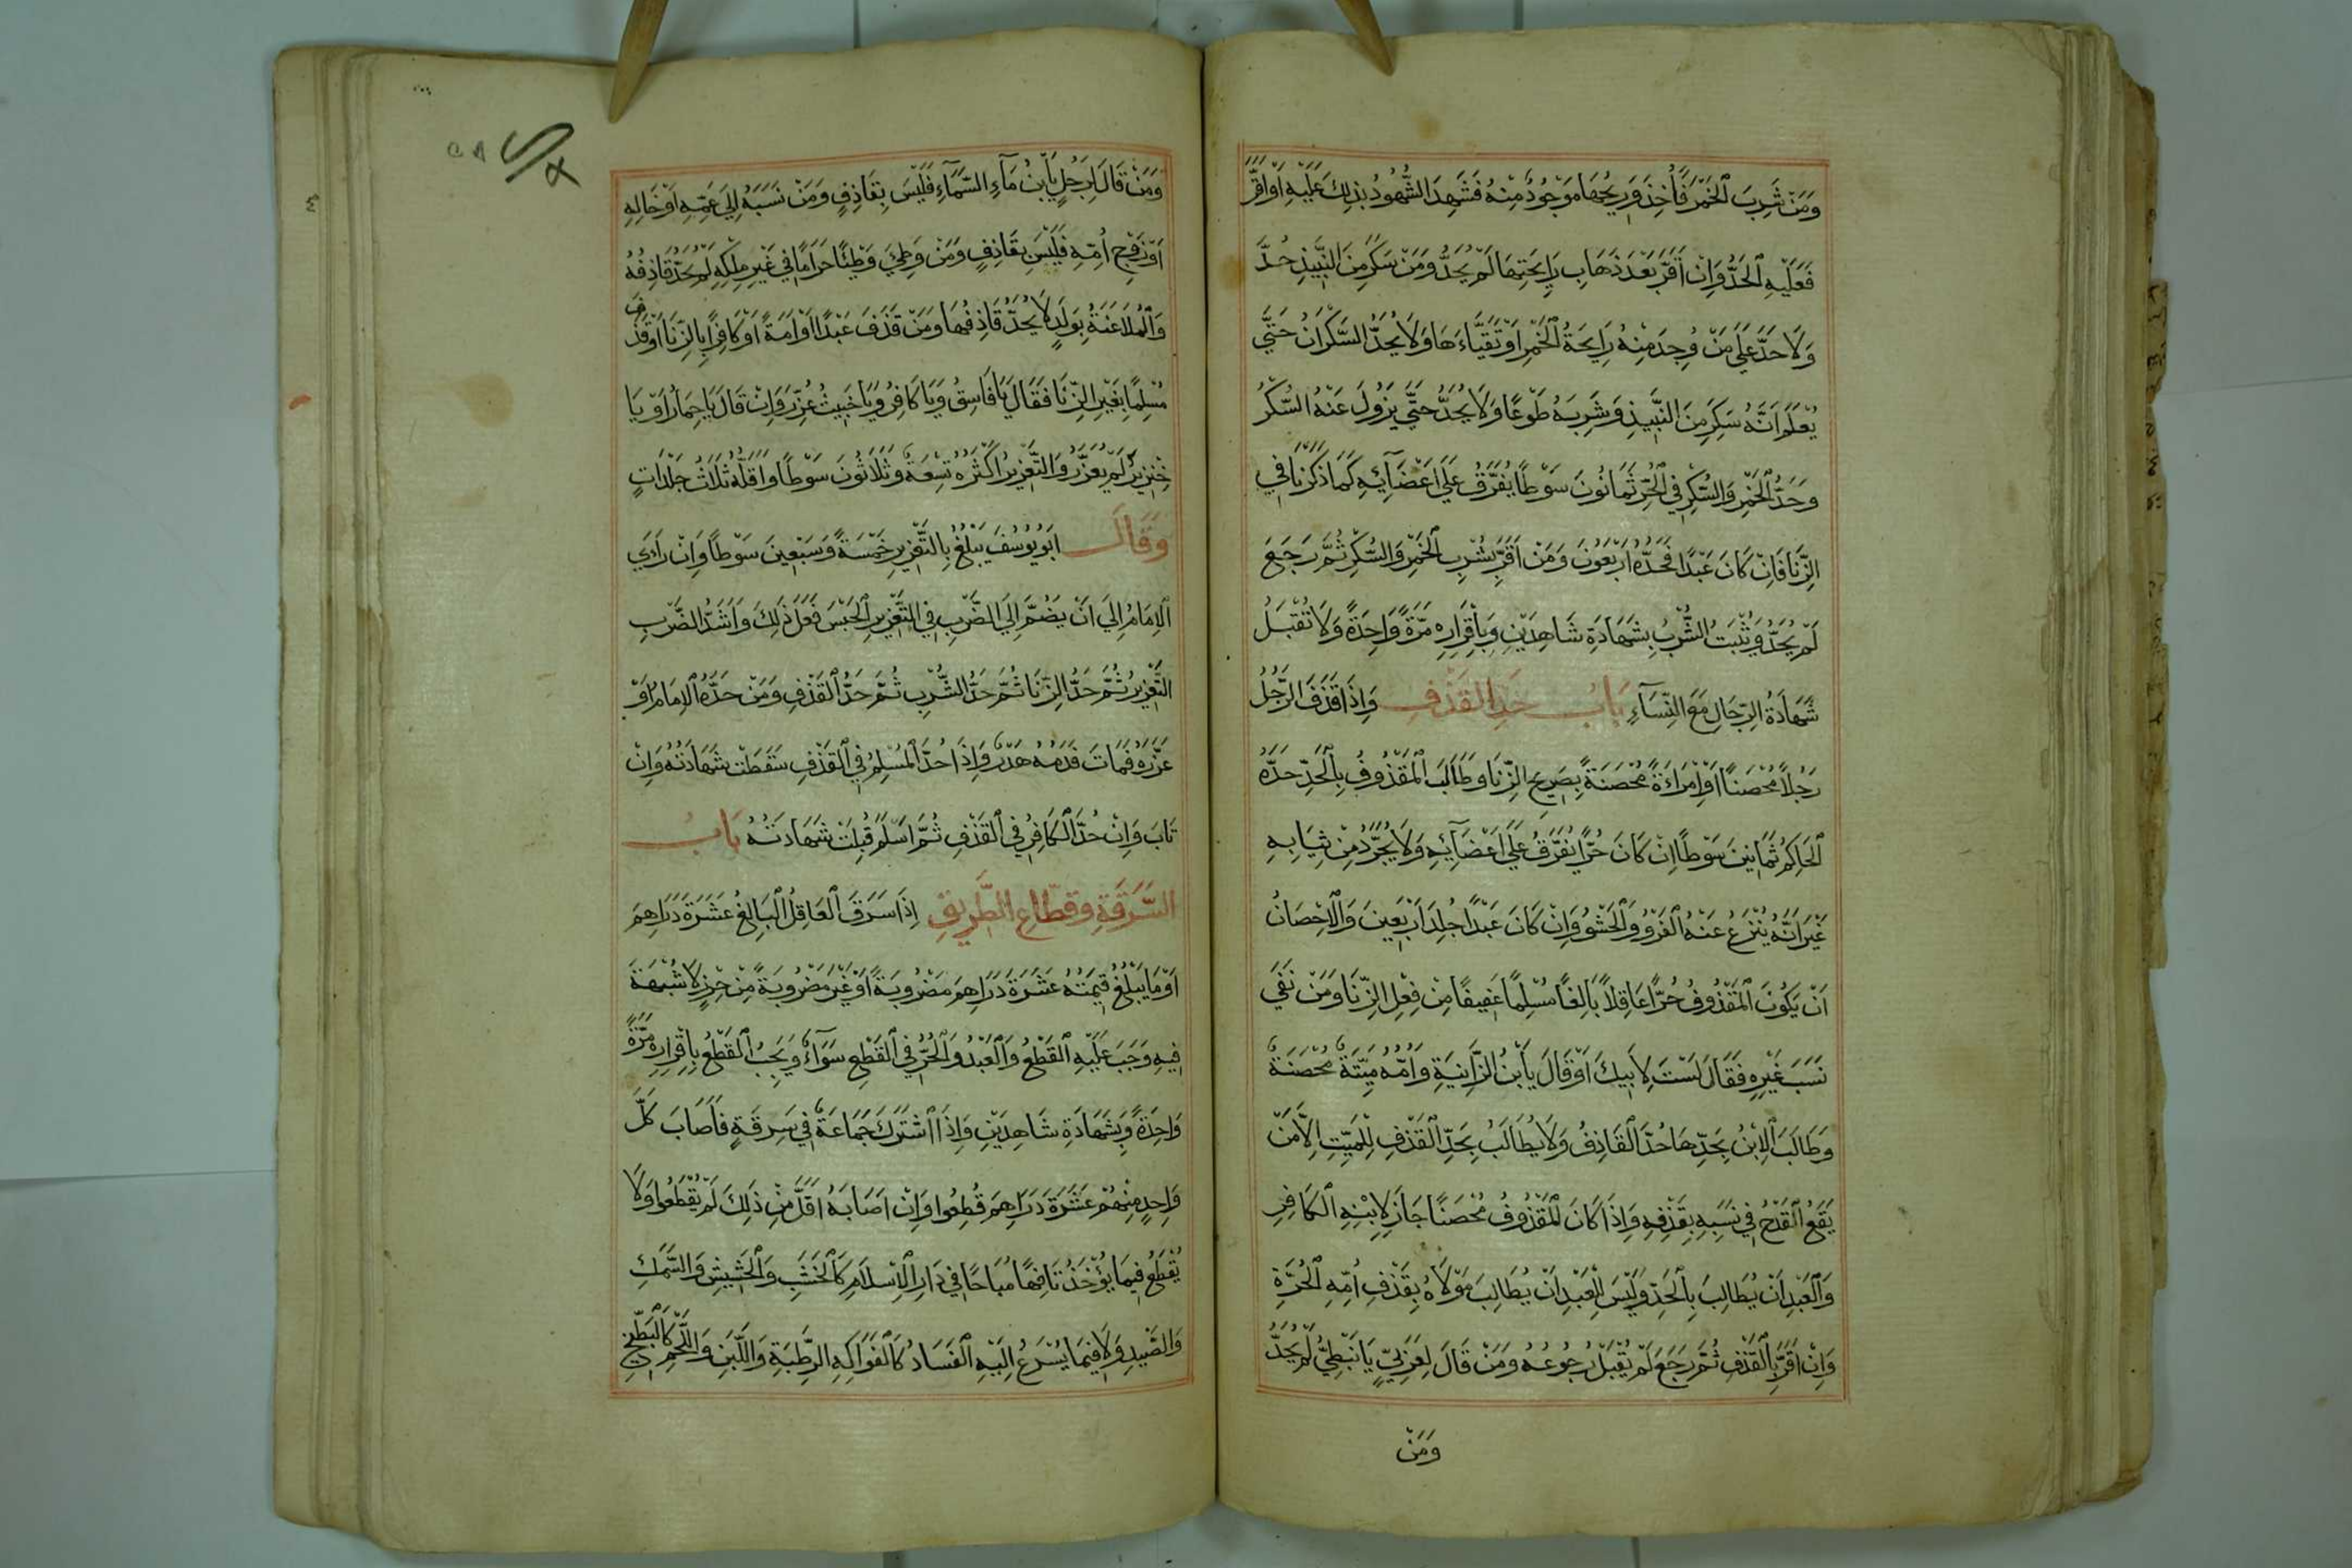 وَمَنْ شَرِبَ الْخَمْرَ فَأُخِذَ وَرِيحُهَا مَوْجُودٌ مِنْهُ فَشَهِدَ الشُّهُودُ بِذٰلِكَ عَلَيْهِ اَوْ اَقَرَّ
فَعَلَيْهِ الْحَدُّ وَاِنْ اَقَرَّ بَعْدَ ذَهَابِ رَايِحَتِهَا لَمْ يُحَدَّ وَمَنْ سَكِرَ مِنَ النَّبِيذِ حُدَّ
وَلَا حَدَّ عَلَى مَنْ وُجِدَ مِنْهُ رَايِحَةُ الْخَمْرِ اَوْ تَقَيَّاءَهَا وَلَا يُحَدُّ السَّكْرَانُ حَتَّى
يُعْلَمَ اَنَّهُ سَكِرَ مِنَ النَّبِيذِ وَشَرِبَهُ طَوْعًا وَلَا يُحَدُّ حَتَّى يَزُولَ عَنْهُ السُّكْرُ
وَحَدُّ الْخَمْرِ وَالسُّكْرِ فِي الْحُرِّ ثَمَانُونَ سَوْطًا يُفَرَّقُ عَلَى اَعْضَآئِهِ كَمَا ذَكَرْنَا فِي
الزِّنَا فَاِنْ كَانَ عَبْدًا فَحَدُّهُ اَرْبَعُونَ وَمَنْ اَقَرَّ بِشُرْبِ الْخَمْرِ وَالسُّكْرِ ثُمَّ رَجَعَ
لَمْ يُحَدَّ وَيَثْبُتُ الشُّرْبُ بِشَهَادَةِ شَاهِدَيْنِ وَبِاِقْرَارِهِ مَرَّةً وَاحِدَةً وَلَا تُقْبَلُ
شَهَادَةُ الرِّجَالِ مَعَ النِّسَآءِ بَابُ حَدِّ الْقَذْفِ وَاِذَا قَذَفَ الرَّجُلُ
رَجُلًا مُحْصَنًا اَوِ امْرَاَةً مُحْصَنَةً بِصَرِيحِ الزِّنَا وَطَالَبَ الْمَقْذُوفُ بِالْحَدِّ حَدَّهُ
الْحَاكِمُ ثَمَانِينَ سَوْطًا اِنْ كَانَ حُرًّا يُفَرَّقُ عَلَى اَعْضَآئِهِ وَلَا يُجَرَّدُ مِنْ ثِيَابِهِ
غَيْرَ اَنَّهُ يُنْزَعُ عَنْهُ الْفَرْوُ وَالْحَشْوُ وَاِنْ كَانَ عَبْدًا جُلِدَ اَرْبَعِينَ وَالْاِحْصَانُ
اَنْ يَكُونَ الْمَقْذُوفُ حُرًّا عَاقِلًا بَالِغًا مُسْلِمًا عَفِيفًا مِنْ فِعْلِ الزِّنَا وَمَنْ نَفَى
نَسَبَ غَيْرِهِ فَقَالَ لَسْتَ لِاَبِيكَ اَوْ قَالَ يَا بْنَ الزَّانِيَةِ وَاُمُّهُ مَيِّتَةٌ مُحْصَنَةٌ
وَطَالَبَ الْاِبْنُ بِحَدِّهَا حُدَّ الْقَاذِفُ وَلَا يُطَالَبُ بِحَدِّ الْقَذْفِ لِلْمَيِّتِ اِلَّا مَنْ
يَقَعُ الْقَدْحُ فِي نَسَبِهِ بِقَذْفِهِ وَاِذَا كَانَ الْمَقْذُوفُ مُحْصَنًا جَازَ لِابْنِهِ الْكَافِرِ
وَالْعَبْدِ اَنْ يُطَالِبَ بِالْحَدِّ وَلَيْسَ لِلْعَبْدِ اَنْ يُطَالِبَ مَوْلَاهُ بِقَذْفِ اُمِّهِ الْحُرَّةِ
وَاِنْ اَقَرَّ بِالْقَذْفِ ثُمَّ رَجَعَ لَمْ يُقْبَلْ رُجُوعُهُ وَمَنْ قَالَ لِعَرَبِيٍّ يَا نَبَطِيُّ لَمْ يُحَدَّ
وَمَنْ
وَمَنْ قَالَ لِرَجُلٍ يَا بْنَ مَآءِ السَّمَآءِ فَلَيْسَ بِقَاذِفٍ وَمَنْ نَسَبَهُ اِلَى عَمِّهِ اَوْ خَالِهِ
اَوْ زَوْجِ اُمِّهِ فَلَيْسَ بِقَاذِفٍ وَمَنْ وَطِئَ وَطْئًا حَرَامًا فِي غَيْرِ مِلْكِهِ لَمْ يُحَدَّ قَاذِفُهُ
وَالْمُلَاعَنَةُ بِوَلَدٍ لَا يُحَدُّ قَاذِفُهَا وَمَنْ قَذَفَ عَبْدًا اَوْ اَمَةً اَوْ كَافِرًا بِالزِّنَا اَوْ قَذَفَ
مُسْلِمًا بِغَيْرِ الزِّنَا فَقَالَ يَا فَاسِقُ وَيَا كَافِرُ وَيَا خَبِيثُ عُزِّرَ وَاِنْ قَالَ يَا حِمَارُ اَوْ يَا
خِنْزِيرُ لَمْ يُعَزَّرْ وَالتَّعْزِيرُ اَكْثَرُهُ تِسْعَةٌ وَثَلَاثُونَ سَوْطًا وَاَقَلُّهُ ثَلَاثُ جَلْدَاتٍ
وَقَالَ اَبُو يُوسُفَ يَبْلُغُ بِالتَّعْزِيرِ خَمْسَةً وَسَبْعِينَ سَوْطًا وَاِنْ رَاَى
الْاِمَامُ اِلَى اَنْ يَضُمَّ اِلَى الضَّرْبِ فِي التَّعْزِيرِ الْحَبْسَ فَعَلَ ذٰلِكَ وَاَشَدُّ الضَّرْبِ
التَّعْزِيرُ ثُمَّ حَدُّ الزِّنَا ثُمَّ حَدُّ الشُّرْبِ ثُمَّ حَدُّ الْقَذْفِ وَمَنْ حَدَّهُ الْاِمَامُ اَوْ
عَزَّرَهُ فَمَاتَ فَدَمُهُ هَدْرٌ وَاِذَا حُدَّ الْمُسْلِمُ فِي الْقَذْفِ سَقَطَتْ شَهَادَتُهُ وَاِنْ
تَابَ وَاِنْ حُدَّ الْكَافِرُ فِي الْقَذْفِ ثُمَّ اَسْلَمَ قُبِلَتْ شَهَادَتُهُ بَابُ
السَّرَقَةِ وَقُطَّاعِ الطَّرِيقِ اِذَا سَرَقَ الْعَاقِلُ الْبَالِغُ عَشَرَةَ دَرَاهِمَ
اَوْ مَا يَبْلُغُ قِيمَتُهُ عَشَرَةَ دَرَاهِمَ مَضْرُوبَةً اَوْ غَيْرَ مَضْرُوبَةً مِنْ حِرْزٍ لَا شُبْهَةَ
فِيهِ وَجَبَ عَلَيْهِ الْقَطْعُ وَالْعَبْدُ وَالْحُرُّ فِي الْقَطْعِ سَوَآءٌ وَيَجِبُ الْقَطْعُ بِاِقْرَارِهِ مَرَّةً
وَاحِدَةً وَبِشَهَادَةِ شَاهِدَيْنِ وَاِذَا اشْتَرَكَ جَمَاعَةٌ فِي سَرِقَةٍ فَاَصَابَ كُلَّ
وَاحِدٍ مِنْهُمْ عَشَرَةَ دَرَاهِمَ قُطِعُوا وَاِنْ اَصَابَهُ اَقَلَّ مِنْ ذٰلِكَ لَمْ يُقْطَعُوا وَلَا
يُقْطَعُ فِيمَا يُؤْخَذُ تَافِهًا مُبَاحًا فِي دَارِ الْاِسْلَامِ كَالْخَشَبِ وَالْحَشِيشِ وَالسَّمَكِ
وَالصَّيْدِ وَلَا فِيمَا يُسْرِعُ اِلَيْهِ الْفَسَادُ كَالْفَوَاكِهِ الرَّطْبَةِ وَاللَّبَنِ وَاللَّحْمِ كَالْبِطِّيخِ